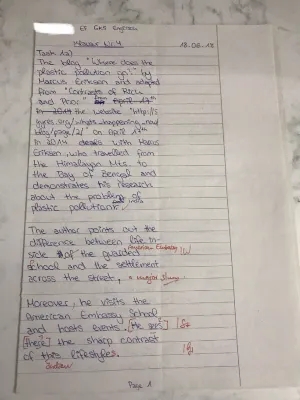 EF GKS Englisch
18.06.18
Task 1a)
The blog "Where does the
plastic pollution go?" by
Marcus Eriksen and adapted
from "Contrasts of Rich
and Poor" from April 17th
In 2014 the website "http://5
gyres.org/whats_happening_now/
blog/page/2/" on April 17th
in 2014 deals with Marcus
Eriksen, who travelled from
the Himalayan Mts. to
the Bay of Bengal and
demonstrates his research
about the problem of
plastic pollution
The author points out the
difference between life in-
side of the guarded American Embassy
School and the settlement
across the street,
Moreover, he visits the
American Embassy School
and hosts events. [He sees]
[there] the sharp contrast
of this lifestyles.
Page 1